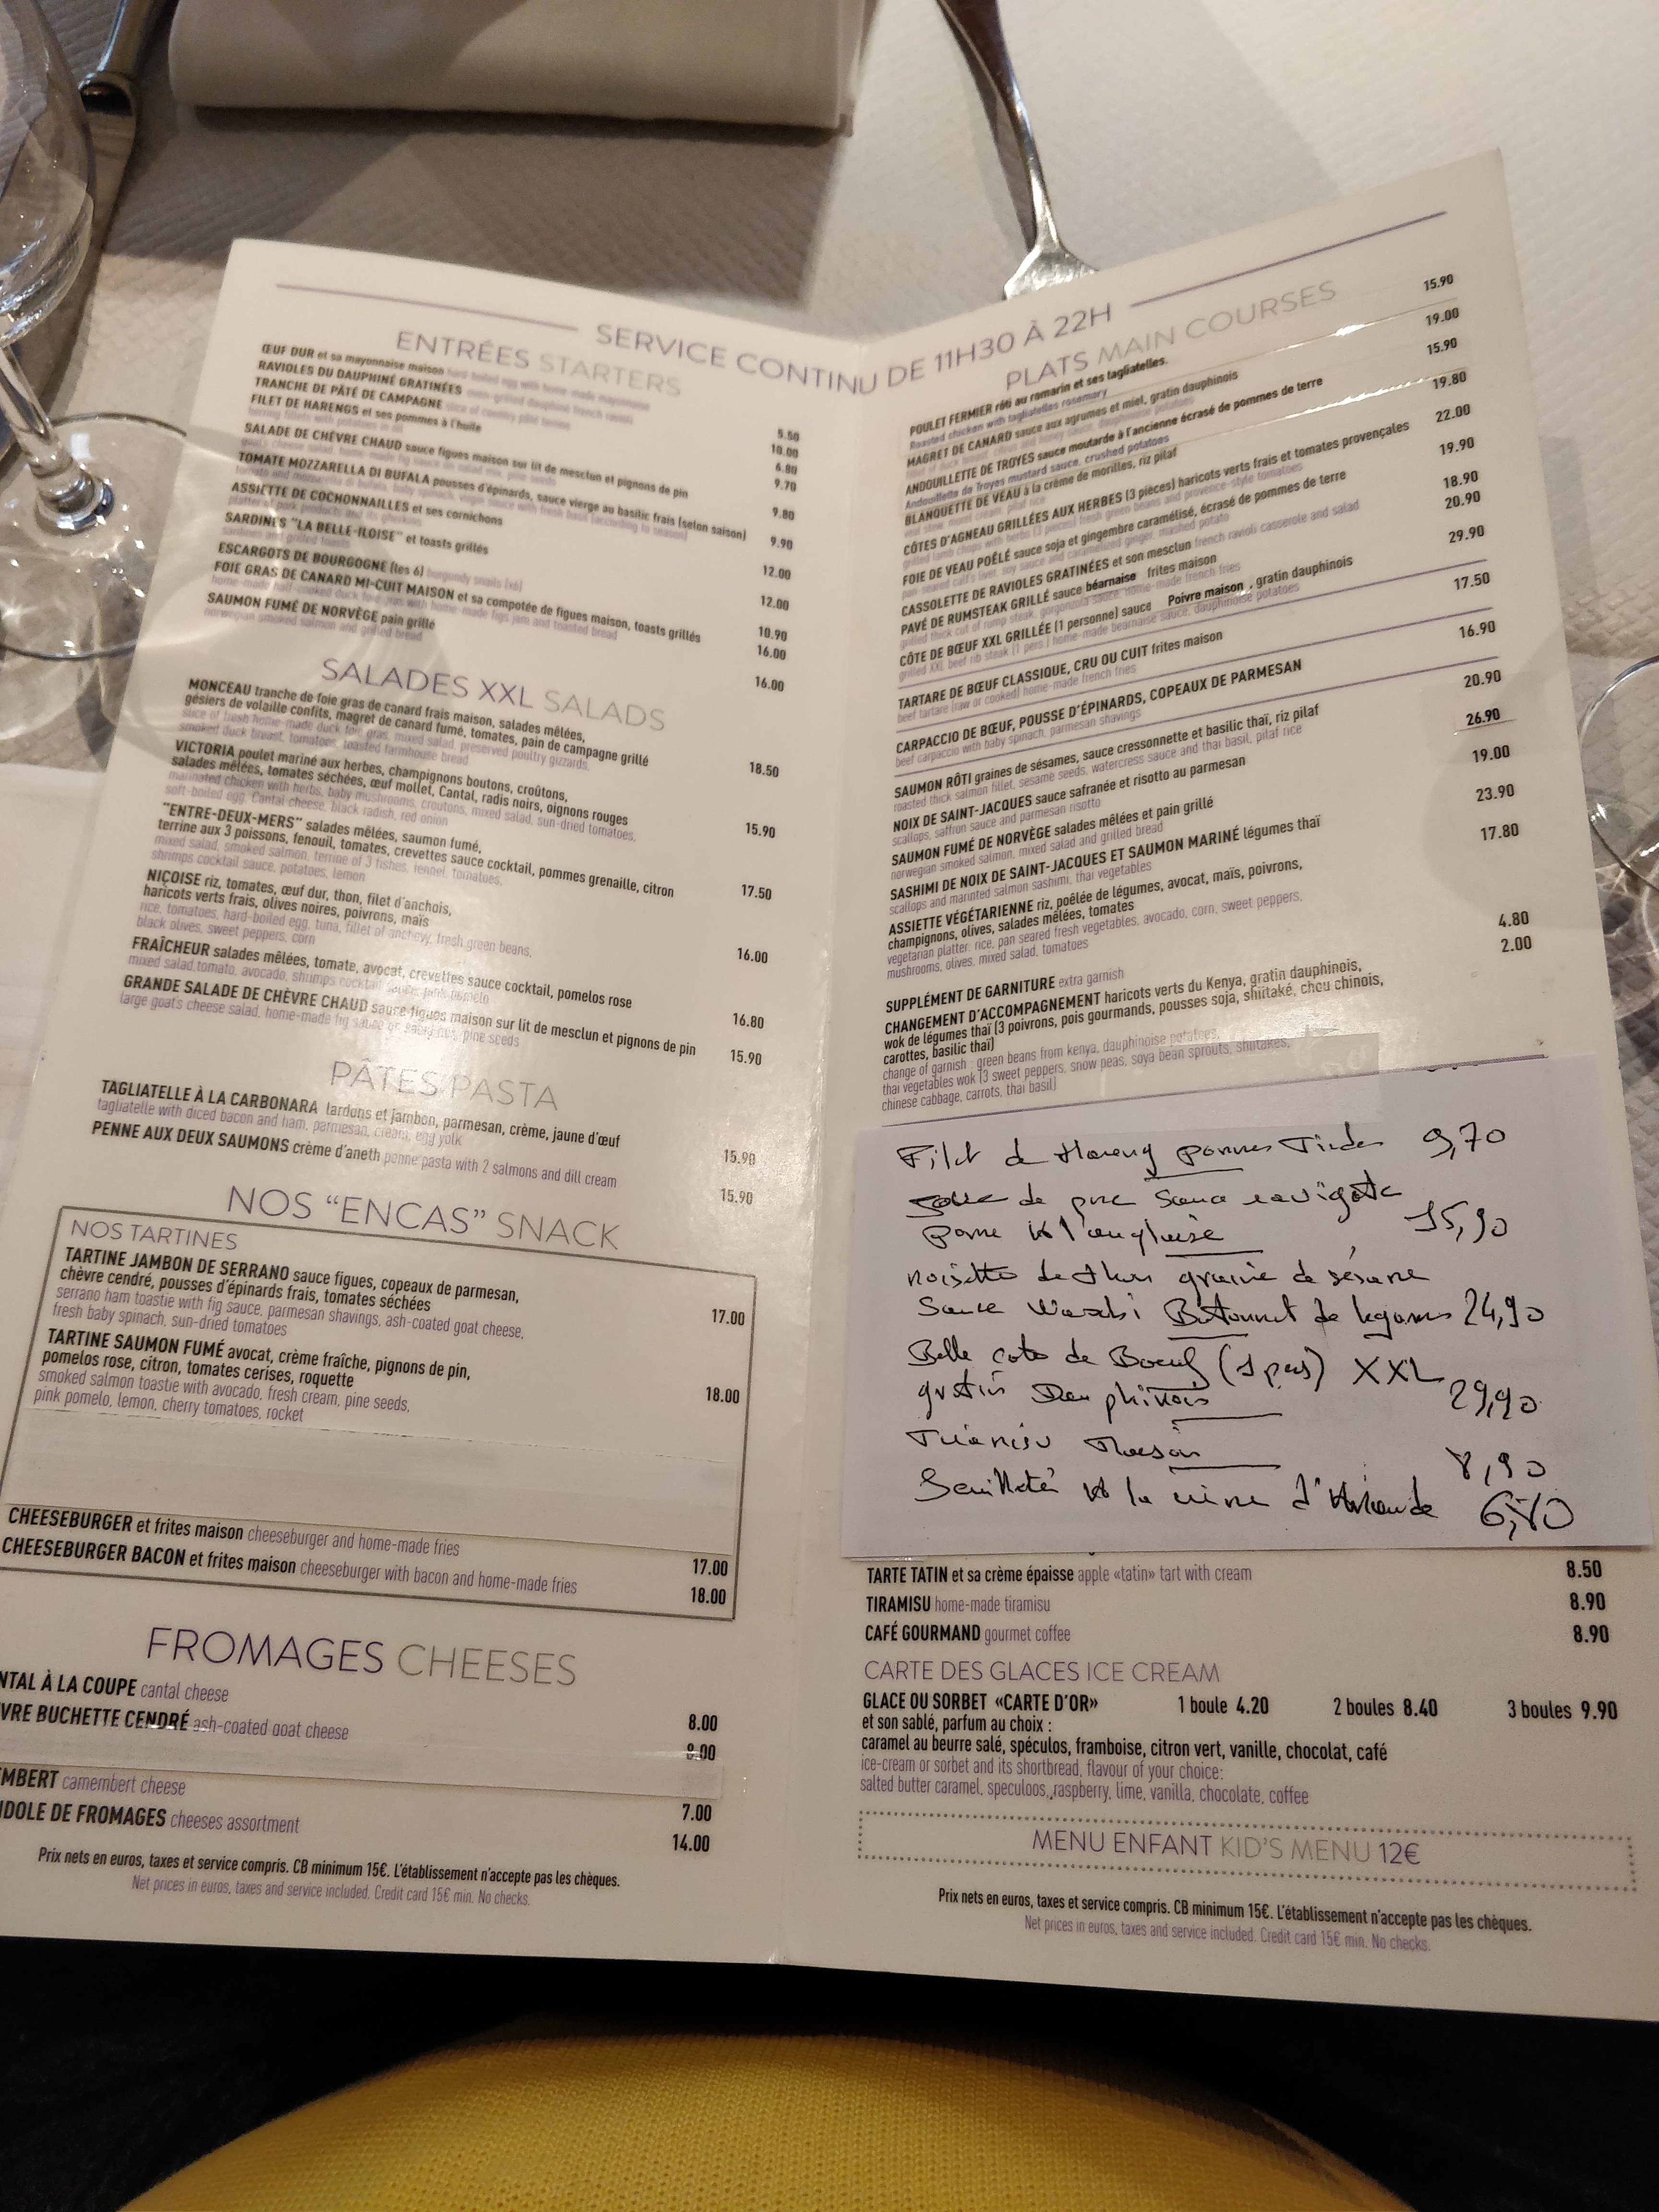 SERVICE CONTINU DE 11H30 À 22H
ENTRÉES STARTERS
ŒUF DUR et sa mayonnaise maison hard-boiled egg with home-made mayonnaise 5.50
RAVIOLES DU DAUPHINÉ GRATINÉES oven-grilled dauphine french ravioli 10.00
TRANCHE DE PÂTÉ DE CAMPAGNE slice of country pâté terrine 6.80
FILET DE HARENGS et ses pommes à l'huile 9.70
herring fillets with potatoes in oil
SALADE DE CHÈVRE CHAUD sauce figues maison sur lit de mesclun et pignons de pin 9.80
goat's cheese salad, home-made fig sauce on salad mix, pine seeds
TOMATE MOZZARELLA DI BUFALA pousses d'épinards, sauce vierge au basilic frais (selon saison) 9.90
tomato and mozzarella di bufala, baby spinach, virgin sauce with fresh basil (according to season)
ASSIETTE DE COCHONNAILLES et ses cornichons 12.00
platter of pork products and its gherkins
SARDINES "LA BELLE-ILOISE" et toasts grillés 12.00
sardines and grilled toasts
ESCARGOTS DE BOURGOGNE (les 6) burgundy snails (x6) 10.90
FOIE GRAS DE CANARD MI-CUIT MAISON et sa compotée de figues maison, toasts grillés 16.00
home-made half-cooked duck foie-gras with home-made figs jam and toasted bread
SAUMON FUMÉ DE NORVÈGE pain grillé 16.00
norwegian smoked salmon and grilled bread
SALADES XXL SALADS
MONCEAU tranche de foie gras de canard frais maison, salades mêlées,
gésiers de volaille confits, magret de canard fumé, tomates, pain de campagne grillé 18.50
slice of fresh home-made duck foie gras, mixed salad, preserved poultry gizzards,
smoked duck breast, tomatoes, toasted farmhouse bread
VICTORIA poulet mariné aux herbes, champignons boutons, croûtons,
salades mêlées, tomates séchées, œuf mollet, Cantal, radis noirs, oignons rouges 15.90
marinated chicken with herbs, baby mushrooms, croutons, mixed salad, sun-dried tomatoes,
soft-boiled egg, Cantal cheese, black radish, red onion
"ENTRE-DEUX-MERS" salades mêlées, saumon fumé,
terrine aux 3 poissons, fenouil, tomates, crevettes sauce cocktail, pommes grenaille, citron 17.50
mixed salad, smoked salmon, terrine of 3 fishes, fennel, tomatoes,
shrimps cocktail sauce, potatoes, lemon
NIÇOISE riz, tomates, œuf dur, thon, filet d'anchois,
haricots verts frais, olives noires, poivrons, maïs 16.00
rice, tomatoes, hard-boiled egg, tuna, fillet of anchovy, fresh green beans,
black olives, sweet peppers, corn
FRAÎCHEUR salades mêlées, tomate, avocat, crevettes sauce cocktail, pomelos rose 16.80
mixed salad, tomato, avocado, shrimps cocktail sauce, pink pomelo
GRANDE SALADE DE CHÈVRE CHAUD sauce figues maison sur lit de mesclun et pignons de pin 15.90
large goat's cheese salad, home-made fig sauce on salad mix, pine seeds
PÂTES PASTA
TAGLIATELLE À LA CARBONARA lardons et jambon, parmesan, crème, jaune d'œuf 15.90
tagliatelle with diced bacon and ham, parmesan, cream, egg yolk
PENNE AUX DEUX SAUMONS crème d'aneth penne pasta with 2 salmons and dill cream 15.90
NOS "ENCAS" SNACK
NOS TARTINES
TARTINE JAMBON DE SERRANO sauce figues, copeaux de parmesan,
chèvre cendré, pousses d'épinards frais, tomates séchées 17.00
serrano ham toastie with fig sauce, parmesan shavings, ash-coated goat cheese,
fresh baby spinach, sun-dried tomatoes
TARTINE SAUMON FUMÉ avocat, crème fraîche, pignons de pin,
pomelos rose, citron, tomates cerises, roquette 18.00
smoked salmon toastie with avocado, fresh cream, pine seeds,
pink pomelo, lemon, cherry tomatoes, rocket
CHEESEBURGER et frites maison cheeseburger and home-made fries 17.00
CHEESEBURGER BACON et frites maison cheeseburger with bacon and home-made fries 18.00
FROMAGES CHEESES
NTAL À LA COUPE cantal cheese 8.00
VRE BUCHETTE CENDRÉ ash-coated goat cheese 8.00
EMBERT camembert cheese 7.00
NDOLE DE FROMAGES cheeses assortment 14.00
Prix nets en euros, taxes et service compris. CB minimum 15€. L'établissement n'accepte pas les chèques.
Net prices in euros, taxes and service included. Credit card 15€ min. No checks.
PLATS MAIN COURSES
POULET FERMIER rôti au romarin et ses tagliatelles. 15.90
Roasted chicken with tagliatelles rosemary
MAGRET DE CANARD sauce aux agrumes et miel, gratin dauphinois 19.00
ANDOUILLETTE DE TROYES sauce moutarde à l'ancienne écrasé de pommes de terre 15.90
Andouillette de Troyes mustard sauce, crushed potatoes
BLANQUETTE DE VEAU à la crème de morilles, riz pilaf 19.80
veal stew, morel cream, pilaf rice
CÔTES D'AGNEAU GRILLÉES AUX HERBES (3 pièces) haricots verts frais et tomates provençales 22.00
grilled lamb chops with herbs (3 pieces) fresh green beans and provence-style tomatoes
FOIE DE VEAU POÊLÉ sauce soja et gingembre caramélisé, écrasé de pommes de terre 19.90
pan-seared calf's liver, soy sauce and caramelized ginger, mashed potato
CASSOLETTE DE RAVIOLES GRATINÉES et son mesclun french ravioli casserole and salad 18.90
PAVÉ DE RUMSTEAK GRILLÉ sauce béarnaise frites maison 20.90
grilled thick cut of rump steak, gorgonzola sauce, home-made french fries
CÔTE DE BŒUF XXL GRILLÉE (1 personne) sauce Poivre maison, gratin dauphinois 29.90
grilled XXL beef rib steak (1 pers.) home-made bearnaise sauce, dauphinoise potatoes
TARTARE DE BŒUF CLASSIQUE, CRU OU CUIT frites maison 17.50
beef tartare (raw or cooked) home-made french fries
CARPACCIO DE BŒUF, POUSSE D'ÉPINARDS, COPEAUX DE PARMESAN 16.90
beef carpaccio with baby spinach, parmesan shavings
SAUMON RÔTI graines de sésames, sauce cressonnette et basilic thaï, riz pilaf 20.90
roasted thick salmon fillet, sesame seeds, watercress sauce and thai basil, pilaf rice
NOIX DE SAINT-JACQUES sauce safranée et risotto au parmesan 26.90
scallops, saffron sauce and parmesan risotto
SAUMON FUMÉ DE NORVÈGE salades mêlées et pain grillé 19.00
norwegian smoked salmon, mixed salad and grilled bread
SASHIMI DE NOIX DE SAINT-JACQUES ET SAUMON MARINÉ légumes thaï 23.90
scallops and marinted salmon sashimi, thai vegetables
ASSIETTE VÉGÉTARIENNE riz, poêlée de légumes, avocat, maïs, poivrons, 17.80
champignons, olives, salades mêlées, tomates
vegetarian platter: rice, pan seared fresh vegetables, avocado, corn, sweet peppers,
mushrooms, olives, mixed salad, tomatoes
SUPPLÉMENT DE GARNITURE extra garnish 4.80
CHANGEMENT D'ACCOMPAGNEMENT haricots verts du Kenya, gratin dauphinois, 2.00
wok de légumes thaï (3 poivrons, pois gourmands, pousses soja, shiitaké, chou chinois,
carottes, basilic thaï)
change of garnish : green beans from kenya, dauphinoise potatoes,
thai vegetables wok (3 sweet peppers, snow peas, soya bean sprouts, shiitakes,
chinese cabbage, carrots, thai basil)
Filet de Hareng pommes Tiedes 9,70
de porc Sauce ravigote
pomme à l'anglaise 15,90
noisette de thon graine de sésame
Sauce Wasabi Batonnet de legumes 24,90
Belle cote de Boeuf (1 pers) XXL
gratin Dauphinois 29,90
Tiramisu Maison 8,90
Feuilleté à la reine d'Irlande 6,80
TARTE TATIN et sa crème épaisse apple «tatin» tart with cream 8.50
TIRAMISU home-made tiramisu 8.90
CAFÉ GOURMAND gourmet coffee 8.90
CARTE DES GLACES ICE CREAM
GLACE OU SORBET «CARTE D'OR» 1 boule 4.20 2 boules 8.40 3 boules 9.90
et son sablé, parfum au choix :
caramel au beurre salé, spéculos, framboise, citron vert, vanille, chocolat, café
ice-cream or sorbet and its shortbread, flavour of your choice:
salted butter caramel, speculoos, raspberry, lime, vanilla, chocolate, coffee
MENU ENFANT KID'S MENU 12€
Prix nets en euros, taxes et service compris. CB minimum 15€. L'établissement n'accepte pas les chèques.
Net prices in euros, taxes and service included. Credit card 15€ min. No checks.